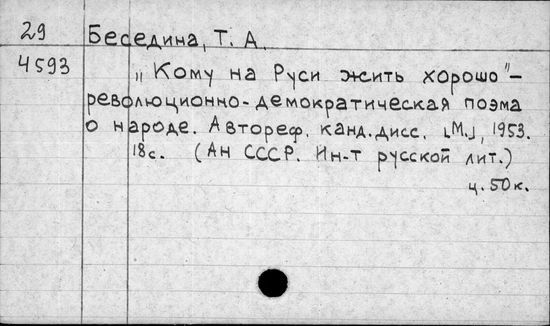 29 Беседина, Т. А.
4593 „Кому на Руси жить хорошо"-
революционно-демократическая поэма
о народе. Автореф. канд. дисс. [М.], 1953.
18с. (Ан СССР. Ин-т русской лит.)
ц. 50к.